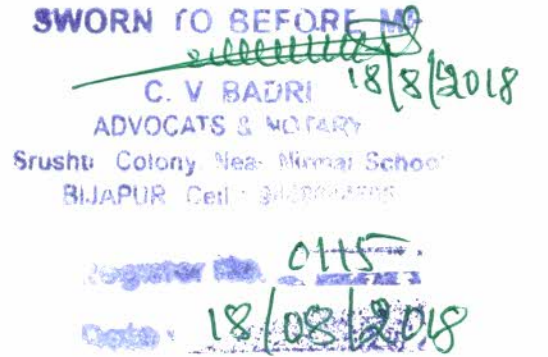 SWORN TO BEFORE ME
18/8/2018
C. V BADRI
ADVOCATS & NOTARY
Srushti Colony, Near Nirmal School
BIJAPUR Cell :
Register No. 0115
Date : 18/08/2018